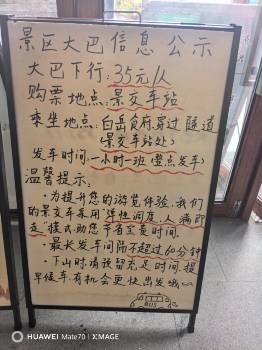 景区大巴信息公示
大巴下行：35元/人
购票地点：景交车站
乘坐地点：白岳食府，穿过隧道
（景交车站处）
发车时间：一小时一班（整点发车）
温馨提示：
·为提升您的游览体验，我们
的景交车采用“弹性调度，人满即
走”模式，助您节省宝贵时间。
·最长发车间隔不超过60分钟
·下山时请预留充足时间，提
早候车，有机会更快出发哦～
BUS
HUAWEI Mate70 | XMAGE